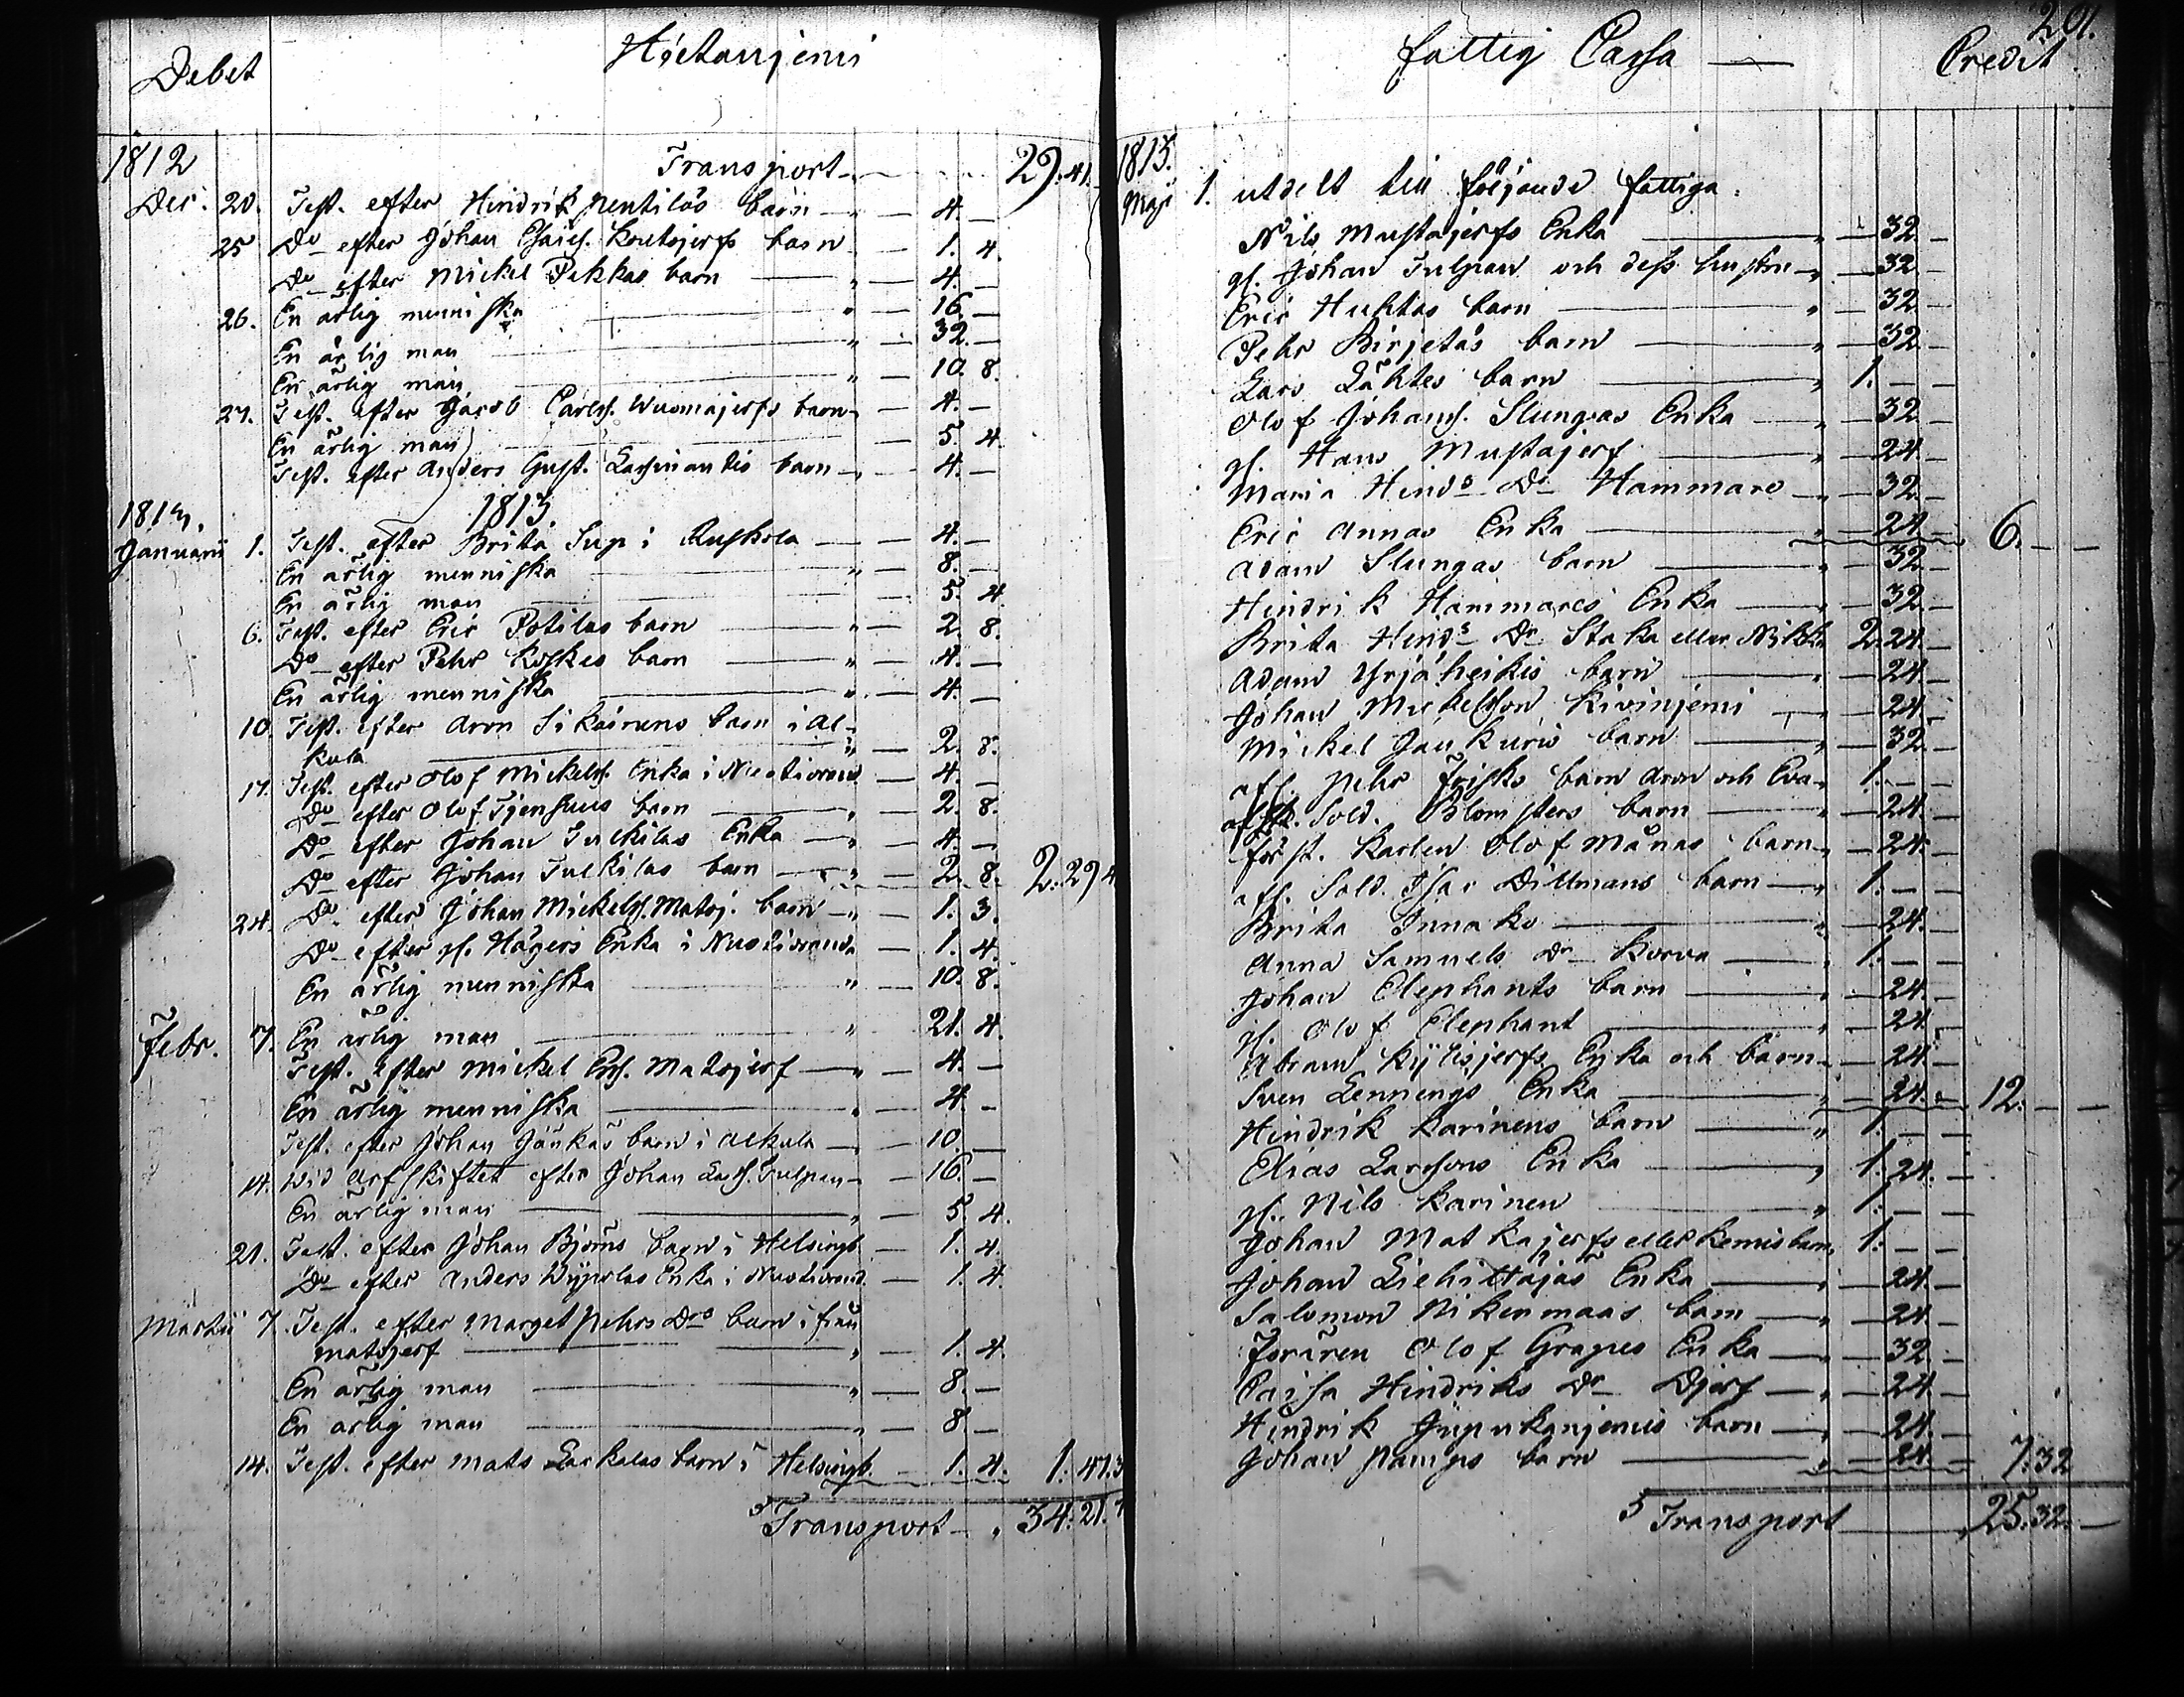 Debet Hietanjemi
1812 Transport 29. 41.
Dec. 20. Test. efter Hindrik Pentilas barn 4. —
25 Do efter Johan Esaies. Koutojerfs barn 1. 4.
Do efter Mickel Pekkas barn 4. —
26. En ärlig menniska 16. —
En ärlig man 32. —
En ärlig man 10. 8.
27. Test. efter Jacob Carls. Wuomajerfs barn 4. —
En ärlig man 5. 4.
Test. efter Anders Gust. barn 4. —
1813.
1813.
Januarii 1. Test. efter Brita Sup i Ruskola 4. —
En ärlig menniska 8. —
En ärlig man 5. 4.
6. Test. efter Eric Potilas barn 2. 8.
Do efter Pehr Koskes barn 4. —
En ärlig menniska 4. —
10. Test. efter Aron barn i Al-
kula 2. 8.
17. Test. efter Olof Mickels. Enka i 4. —
Do efter Olof barn 2. 8.
Do efter Johan Julkilas Enka 4. —
Do efter Johan Julkilas barn 2. 8. 2. 29 4
24. Do efter Johan Mickels. Matoj. barn 1. 3.
Do efter gl. Hägers Enka i 1. 4.
En ärlig menniska 10. 8.
Febr. 7. En ärlig man 21. 4.
Test. efter Mickel Ers. Matojerf 4. —
En ärlig menniska 4. —
Test. efter Johan barn i Alkula 10. —
14. Wid Arfskiftet efter Johan Lars. Tulpan 16. —
En ärlig man 5. 4.
21. Test. efter Johan Björns barn i Helsingb. 1. 4.
Do efter Anders Enka i 1. 4.
Martii 7. Test. efter Marget Pehrs Drs barn ifrån
Matojerf 1. 4.
En ärlig man 8. —
En ärlig man 8 —
14. Test. efter Mats Laukalas barn i Helsingb. 1. 4. 1. 47. 3
Transport 34. 21.
201.
fattig Cassa — Credit
1813.
Maji 1. utdelt till följande fattiga.
Nils Mustajerfs Enka 32 —
gl. Johan Tulpan och dess hustru 32 —
Eric Huhtas barn 32 —
Pehr Birjetas barn 32 —
Lars Lähtes barn 1. — —
Olof Johans. Slungas Enka 32 —
gl. Hans Mustajerf 24 —
Maria Hinds Dr Hammare 32 —
Eric Annas Enka 24 6. — —
Adam Slungas barn 32 —
Hindrik Hammares Enka 32 —
Brita Hinds Dr Staka eller 2. 24. —
Adam Yrjäheikis barn 24. —
Johan Mickelsson Kivinjemi 24. —
Mickel barn 32 —
afl. Pehr Friskes barn Aron och Eva 1. — —
Sold. Blomsters barn 24. —
först. Karlen Olof Månas barn 24. —
afl. Sold. Isac Dillmans barn 1. — —
Brita Innako 24. —
Anna Samuels Dr Korva 1. — —
Johan Elephants barn 24. —
gl. Olof Elephant 24 —
Abram Kylisjerfs Enka och barn 24. —
Sven Lennings Enka 24. — 12. — —
Hindrik Karinens barn 1. — —
Elias Larssons Enka 1. 24. —
gl. Nils Karinen 1. — —
Johan Matkajerfs eller Kemis barn 1. — —
Johan Liehittäjas Enka 24. —
Salomon Nikenmaas barn 24 —
Foraren Olof Grapes Enka 32 —
Caisa Hindriks Dr Djerf 24 —
Hindrik Jupukanjemis barn 24. —
Johan Pamps barn 24 — 7. 32
Transport 25. 32. —